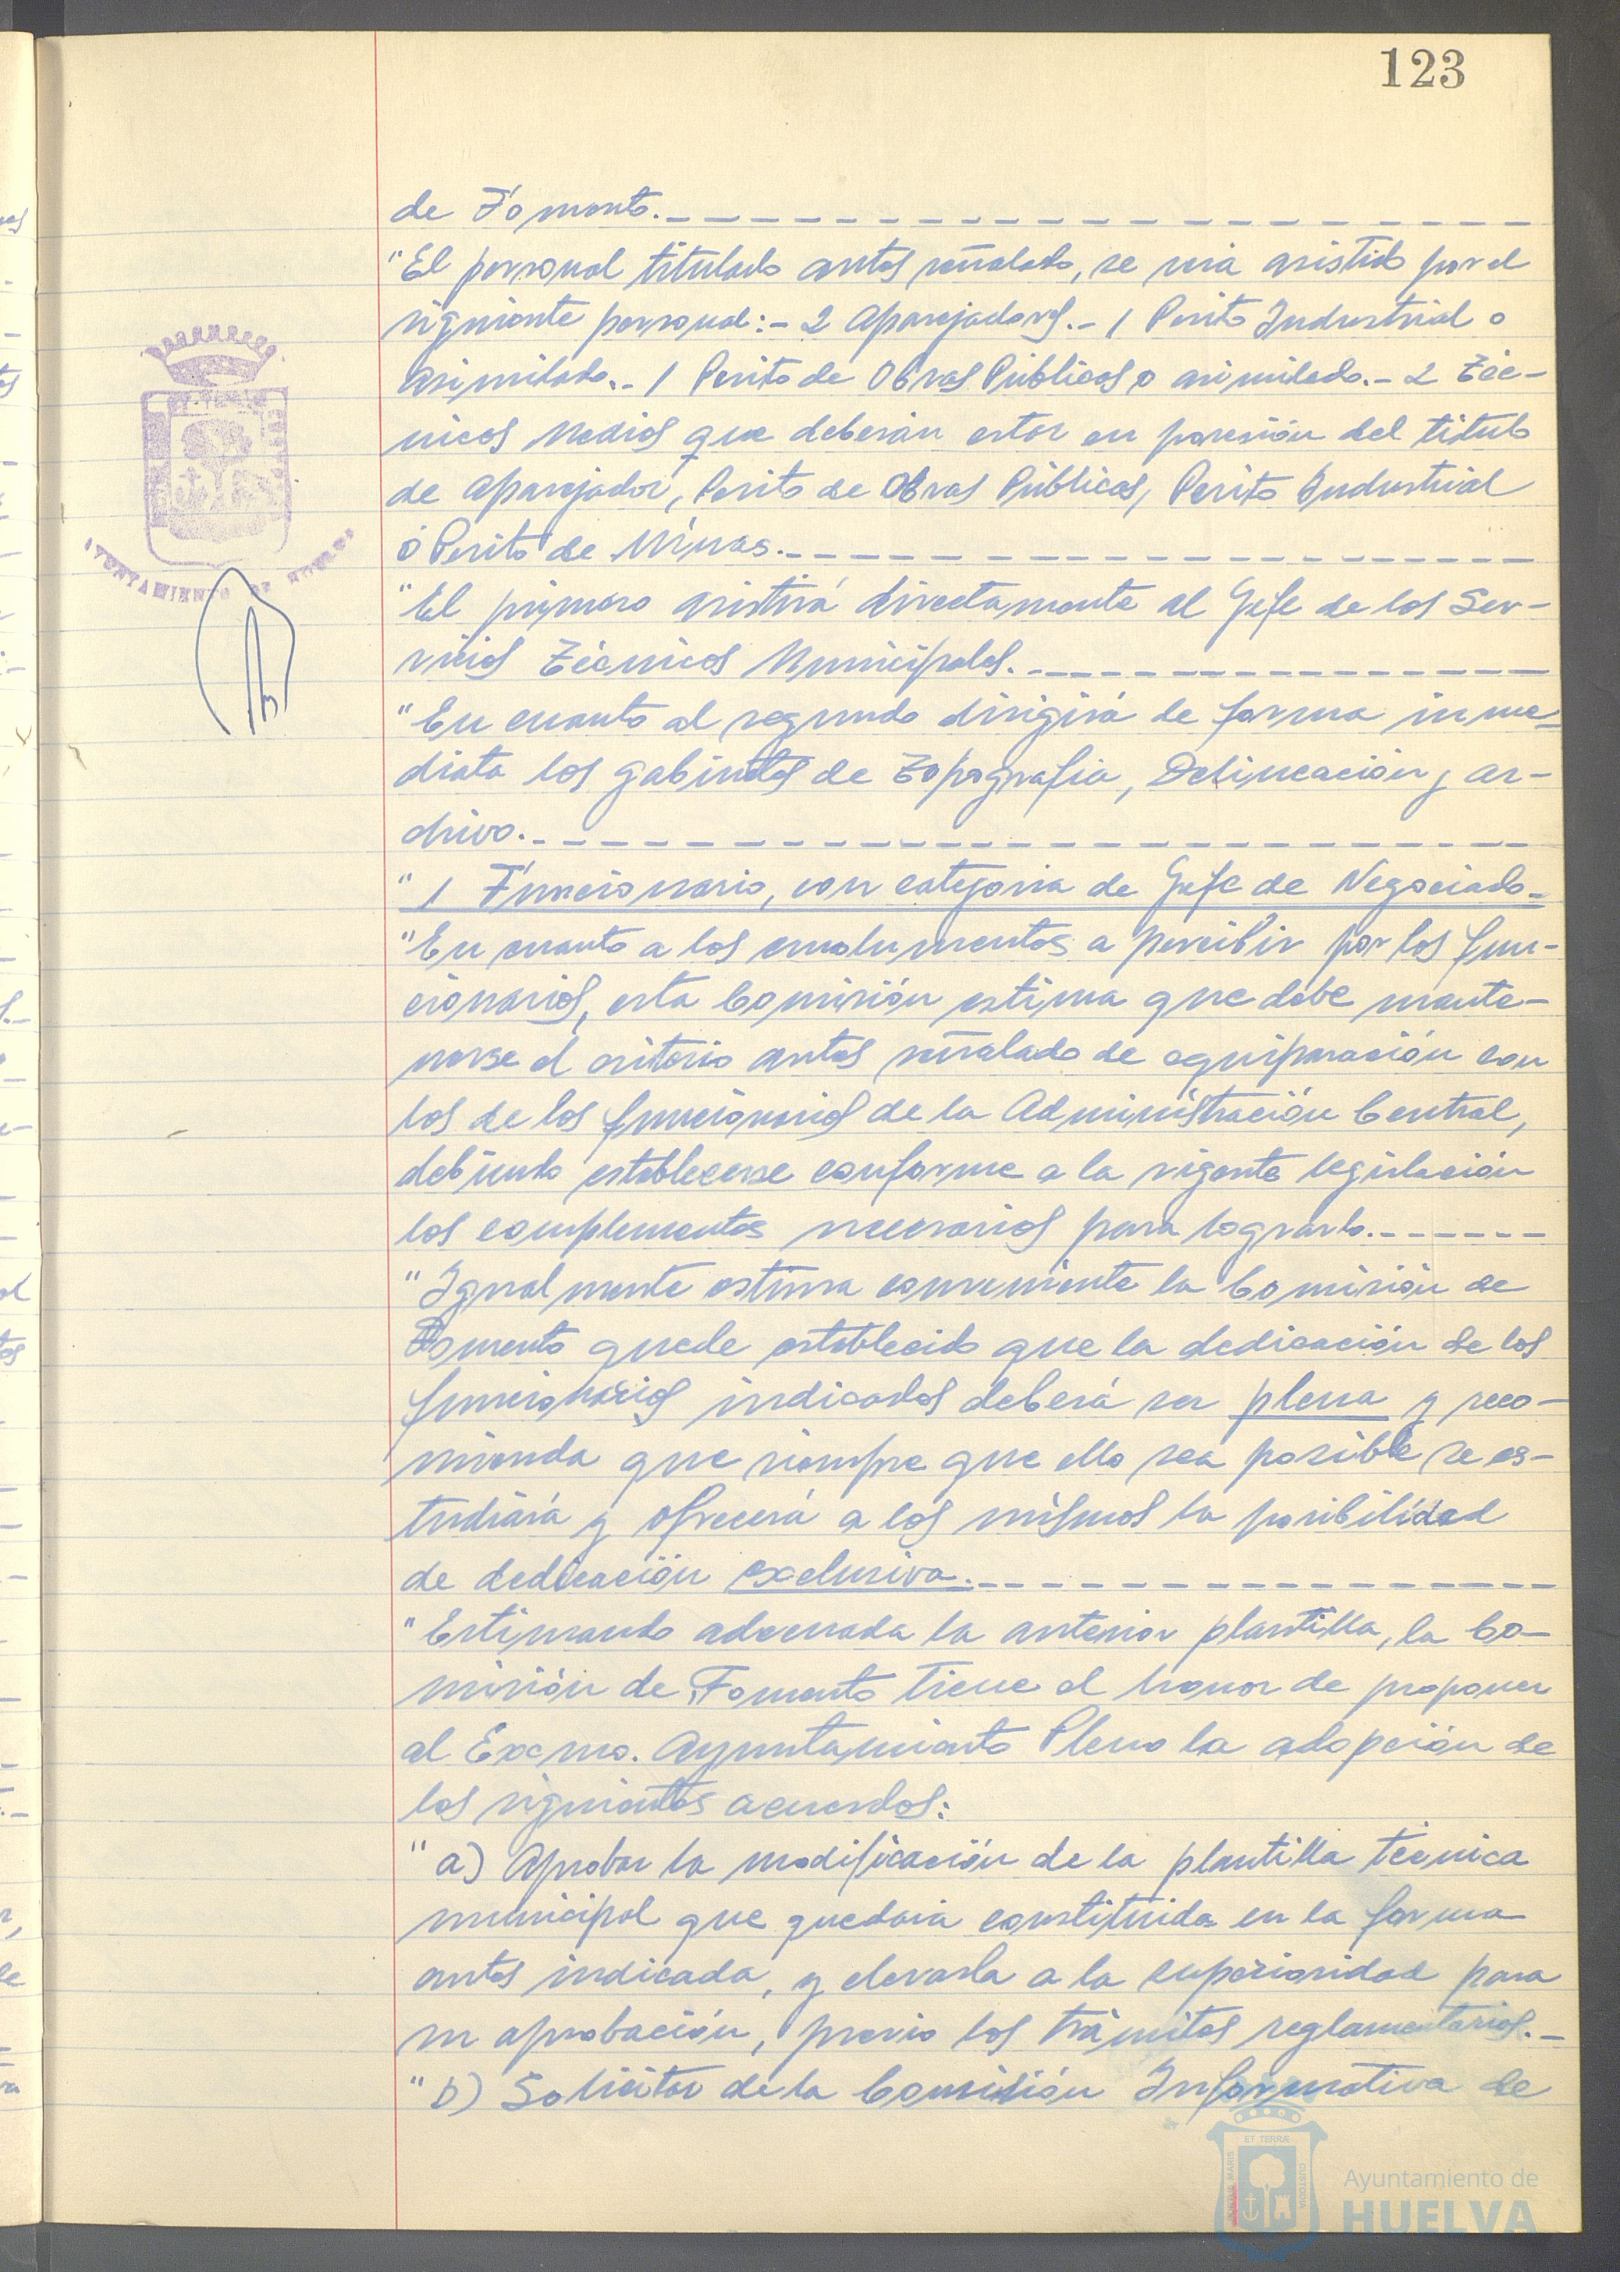 123
de Fomento.
"El personal titulado antes señalado, se verá asistido por el
siguiente personal:- 2 Aparejadores.- 1 Perito Industrial o
asimilado.- 1 Perito de Obras Públicas o asimilado.- 2 Téc-
nicos Medios que deberán estar en posesión del título
de Aparejador, Perito de Obras Públicas, Perito Industrial
ó Perito de Minas.
"El primero asistirá directamente al Gefe de los Ser-
vicios Técnicos Municipales.
"En cuanto al segundo dirigirá de forma inme-
diata los gabinetes de Topografía, Delineación y ar-
chivo.
"1 Funcionario, con categoría de Gefe de Negociado.
"En cuanto a los emolumentos a percibir por los fun-
cionarios, esta Comisión estima que debe mante-
nerse el criterio antes señalado de equiparación con
los de los funcionarios de la Administración Central,
debiendo establecerse conforme a la vigente legislación
los complementos necesarios para lograrlo.
"Igualmente estima conveniente la Comisión de
Fomento quede establecido que la dedicación de los
funcionarios indicados deberá ser plena y reco-
mienda que siempre que ello sea posible se es-
tudiará y ofrecerá a los mismos la posibilidad
de dedicación exclusiva.
"Estimando adecuada la anterior plantilla, la Co-
misión de Fomento tiene el honor de proponer
al Excmo. Ayuntamiento Pleno la adopción de
los siguientes acuerdos:
"a) Aprobar la modificación de la plantilla técnica
municipal que quedaría constituida en la forma
antes indicada, y elevarla a la superioridad para
su aprobación, previo los trámites reglamentarios.-
"b) Solicitar de la Comisión Informativa de
AYUNTAMIENTO DE HUELVA
ET TERRÆ
MARIS
CUSTODIA
Ayuntamiento de
HUELVA